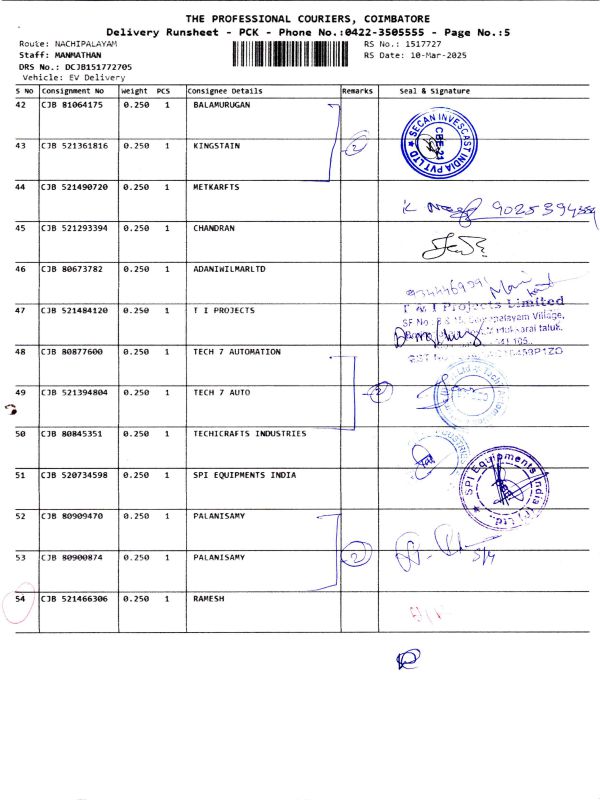 THE PROFESSIONAL COURIERS, COIMBATORE
Delivery Runsheet - PCK - Phone No.:0422-3505555 - Page No.:5
Route: NACHIPALAYAM RS No.: 1517727
Staff: MANMATHAN RS Date: 10-Mar-2025
DRS No.: DCJB151772705
Vehicle: EV Delivery
S No Consignment No Weight PCS Consignee Details Remarks Seal & Signature
42 CJB 81064175 0.250 1 BALAMURUGAN
SECAN INVESCAST INDIA PVT LTD
CBE-21
43 CJB 521361816 0.250 1 KINGSTAIN 2
44 CJB 521490720 0.250 1 METKARFTS
45 CJB 521293394 0.250 1 CHANDRAN
46 CJB 80673782 0.250 1 ADANIWILMARLTD
T & I Projects Limited
47 CJB 521484120 0.250 1 T I PROJECTS
48 CJB 80877600 0.250 1 TECH 7 AUTOMATION
49 CJB 521394804 0.250 1 TECH 7 AUTO 2
50 CJB 80845351 0.250 1 TECHICRAFTS INDUSTRIES
51 CJB 520734598 0.250 1 SPI EQUIPMENTS INDIA
SPI Equipments India (P) Ltd.
52 CJB 80909470 0.250 1 PALANISAMY
53 CJB 80900874 0.250 1 PALANISAMY 2
54 CJB 521466306 0.250 1 RAMESH